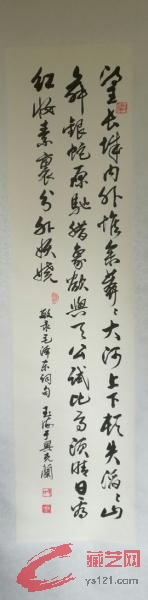 望长城内外惟余莽莽大河上下顿失滔滔山
舞银蛇原驰腊象欲与天公试比高须晴日看
红妆素裹分外妖娆
敬录毛泽东词句
藏艺网
ys121.com